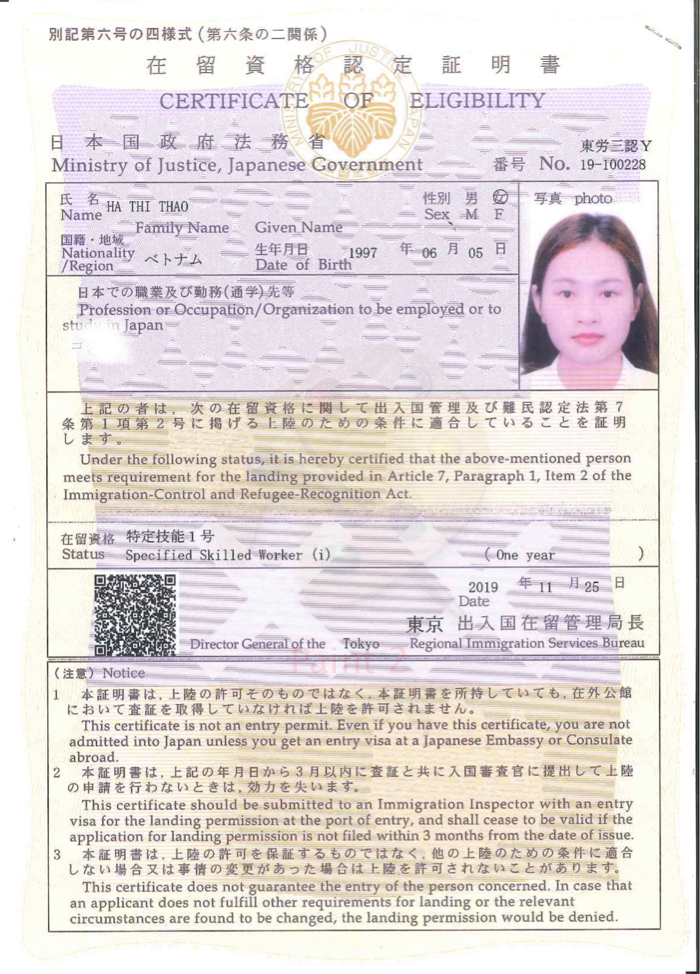 別記第六号の四様式(第六条の二関係)
在留資格認定証明書
CERTIFICATE OF ELIGIBILITY
MINISTRY OF JUSTICE, JAPAN
日本国政府法務省
東労三認Y
Ministry of Justice, Japanese Government 番号 No. 19-100228
氏名 性別 男 女 写真 photo
Name HA THI THAO Sex M F
Family Name Given Name
国籍・地域 生年月日 1997 年 06 月 05 日
Nationality ベトナム Date of Birth
/Region
日本での職業及び勤務(通学)先等
Profession or Occupation/Organization to be employed or to
study in Japan
上記の者は,次の在留資格に関して出入国管理及び難民認定法第7
条第1項第2号に掲げる上陸のための条件に適合していることを証明
します。
Under the following status, it is hereby certified that the above-mentioned person
meets requirement for the landing provided in Article 7, Paragraph 1, Item 2 of the
Immigration-Control and Refugee-Recognition Act.
在留資格 特定技能1号
Status Specified Skilled Worker (i) ( One year )
2019 年 11 月 25 日
Date
東京 出入国在留管理局長
Director General of the Tokyo Regional Immigration Services Bureau
(注意) Notice
1 本証明書は,上陸の許可そのものではなく,本証明書を所持していても,在外公館
において査証を取得していなければ上陸を許可されません。
This certificate is not an entry permit. Even if you have this certificate, you are not
admitted into Japan unless you get an entry visa at a Japanese Embassy or Consulate
abroad.
2 本証明書は,上記の年月日から3月以内に査証と共に入国審査官に提出して上陸
の申請を行わないときは,効力を失います。
This certificate should be submitted to an Immigration Inspector with an entry
visa for the landing permission at the port of entry, and shall cease to be valid if the
application for landing permission is not filed within 3 months from the date of issue.
3 本証明書は,上陸の許可を保証するものではなく,他の上陸のための条件に適合
しない場合又は事情の変更があった場合は上陸を許可されないことがあります。
This certificate does not guarantee the entry of the person concerned. In case that
an applicant does not fulfill other requirements for landing or the relevant
circumstances are found to be changed, the landing permission would be denied.